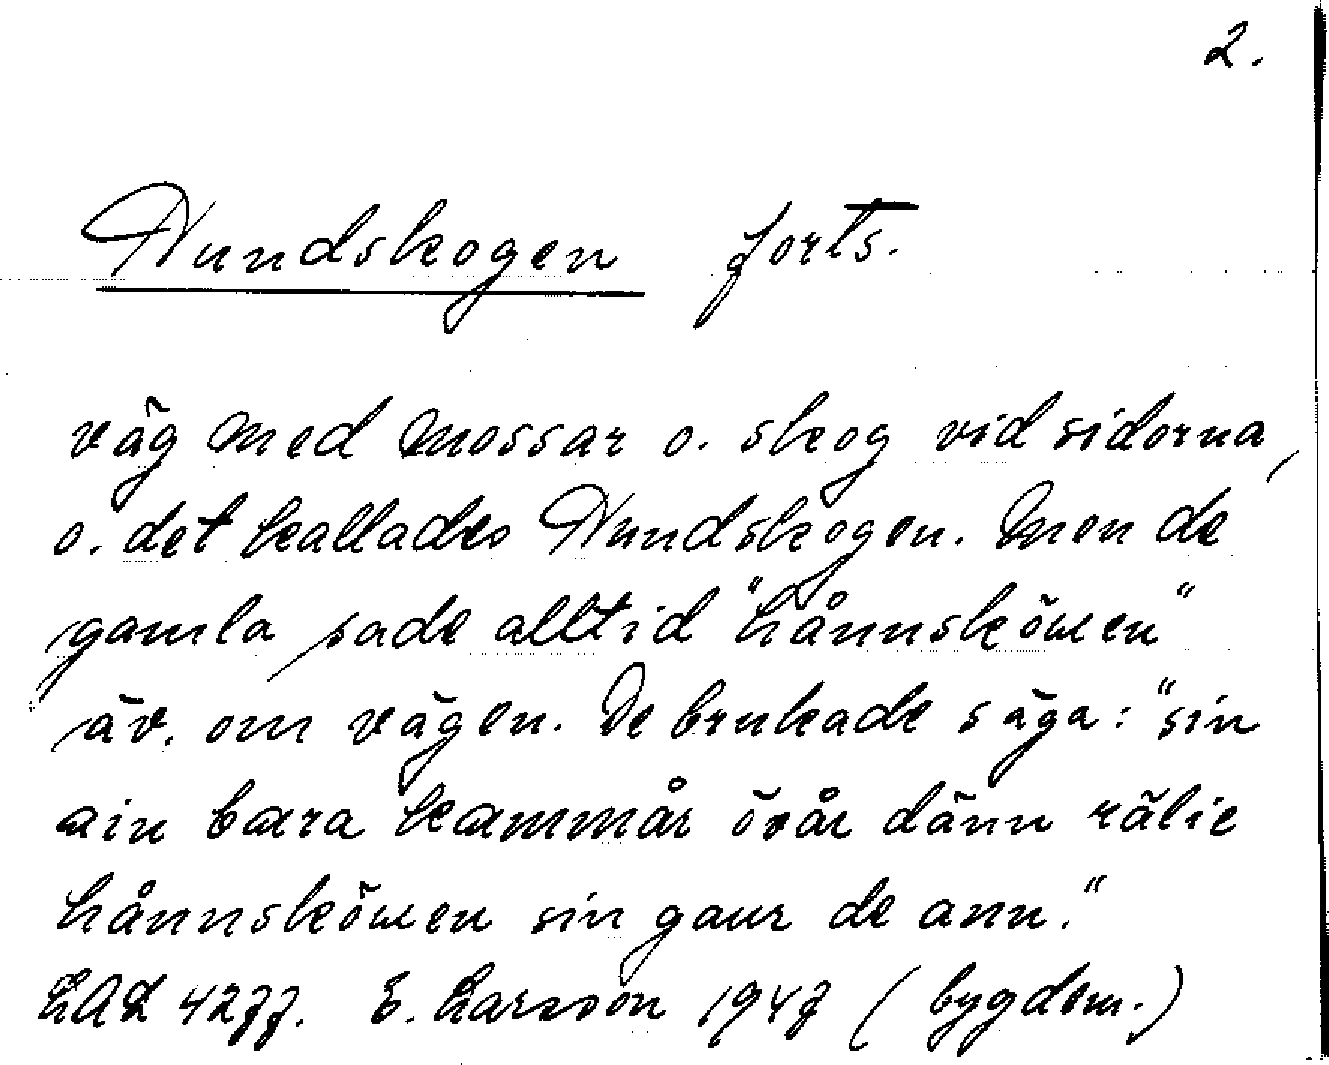 2.
Hundskogen forts.
väg med mossar o. skog vid sidorna,
o. det kallades Hundskogen. Men de
gamla sade alltid "hånnsköwen"
äv. om vägen. De brukade säga: "sin
ain bara kammår övår dänn rälie
hånnsköwen sin gaur de ann."
LAL 4277. E. Larsson 1947 (bygdem.)